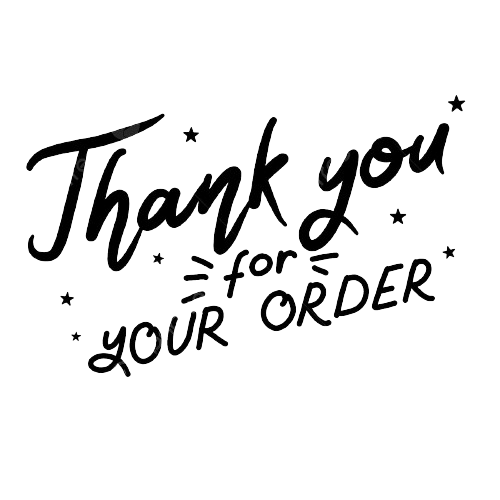 Thank you
for
YOUR ORDER